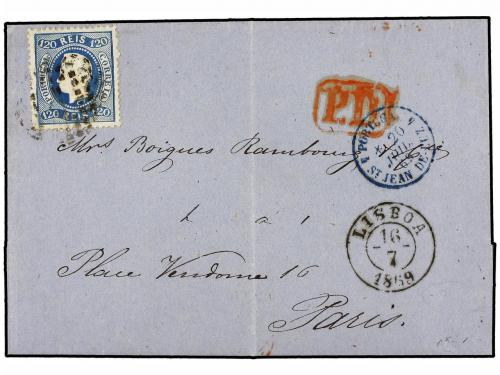 120 REIS 120
PORTUGAL CORREIO
120 REIS 120
P.D.
PORTUGAL
20
JUIL
ST JEAN DE
Mrs Boigues Rambourg
à
Place Vendome 16
Paris.
LISBOA
16
7
1869